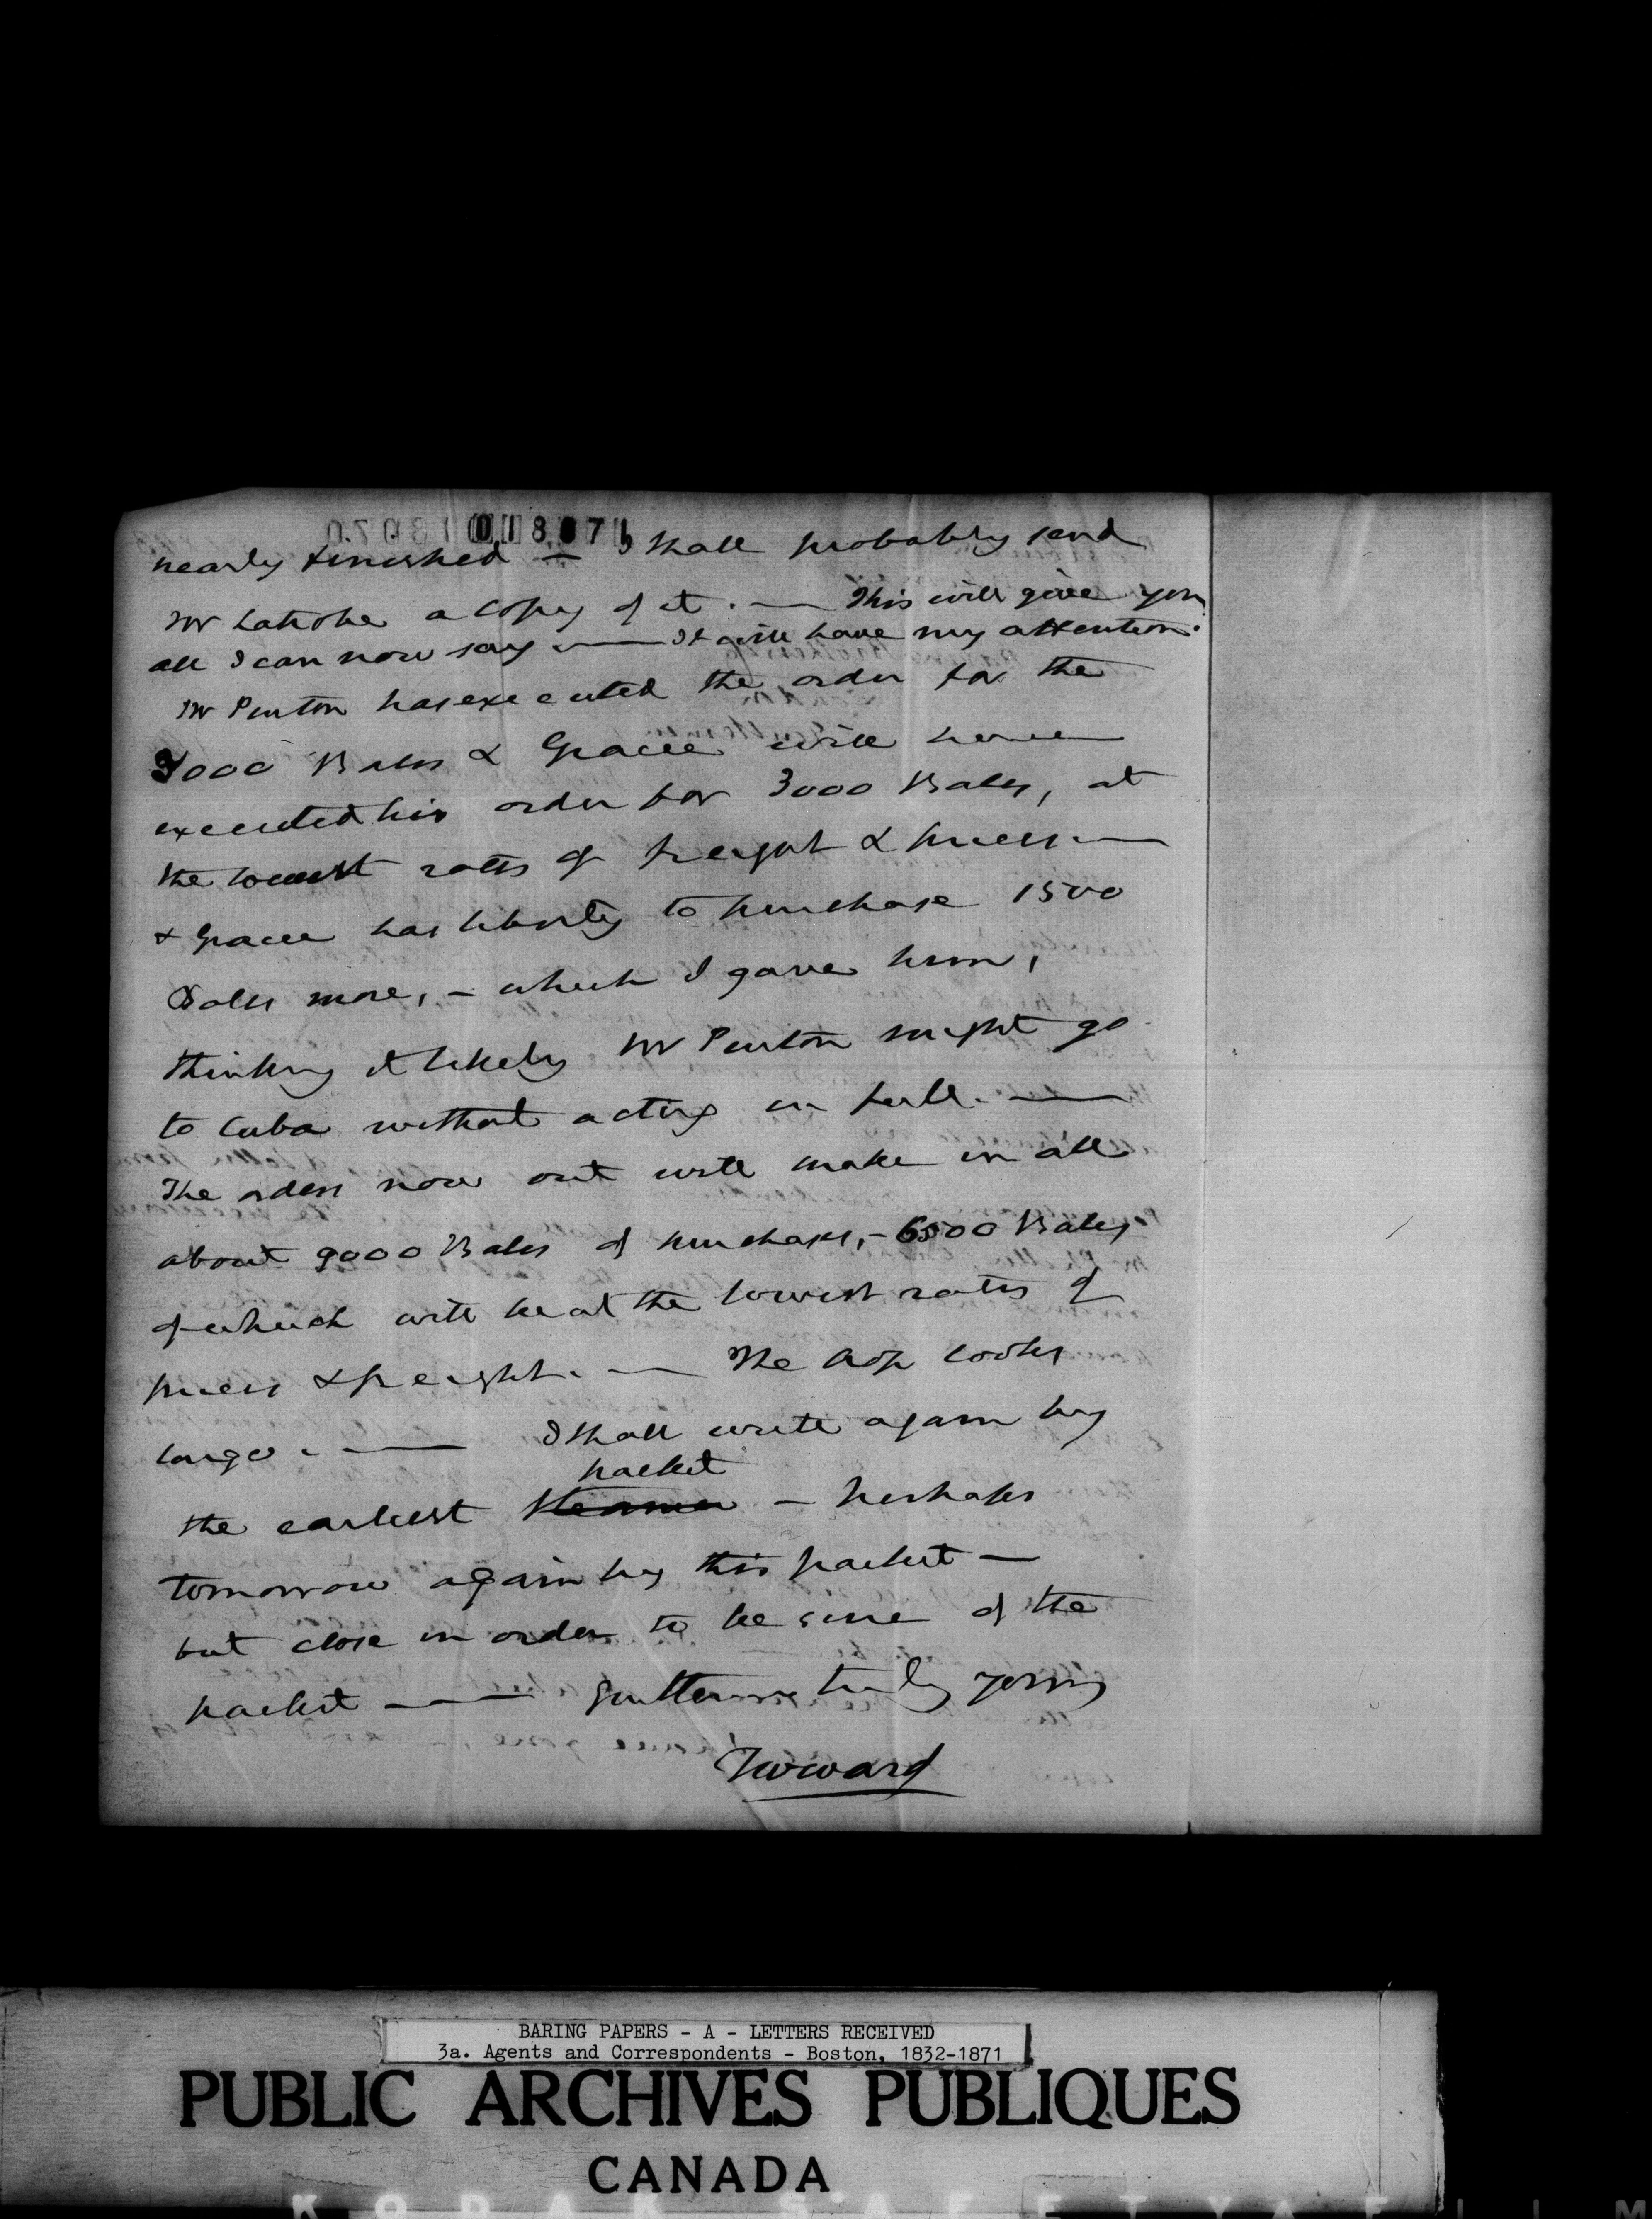 018071
nearly finished — I shall probably send
Mr Latrobe a copy of it. — This will give you
all I can now say — It will have my attention.
Mr Penton has executed the order for the
3000 Bales & Gracie will have
executed his order for 3000 Bales, at
the lowest rates of freight & prices —
& Gracie has liberty to purchase 1500
Bales more, — which I gave him,
thinking it likely Mr Penton might go
to Cuba without acting in full. —
The orders now out will make in all
about 9000 Bales of purchases, — 6500 Bales
of which will be at the lowest rates of
prices & freight. — The crop looks
large. — I shall write again by
packet
the earliest steamer — perhaps
tomorrow again by this packet —
but close in order to be sure of the
packet — Gentlemen truly yours
TWWard
BARING PAPERS - A - LETTERS RECEIVED
3a. Agents and Correspondents - Boston, 1832-1871
PUBLIC ARCHIVES PUBLIQUES
CANADA
KODAK SAFETY FILM